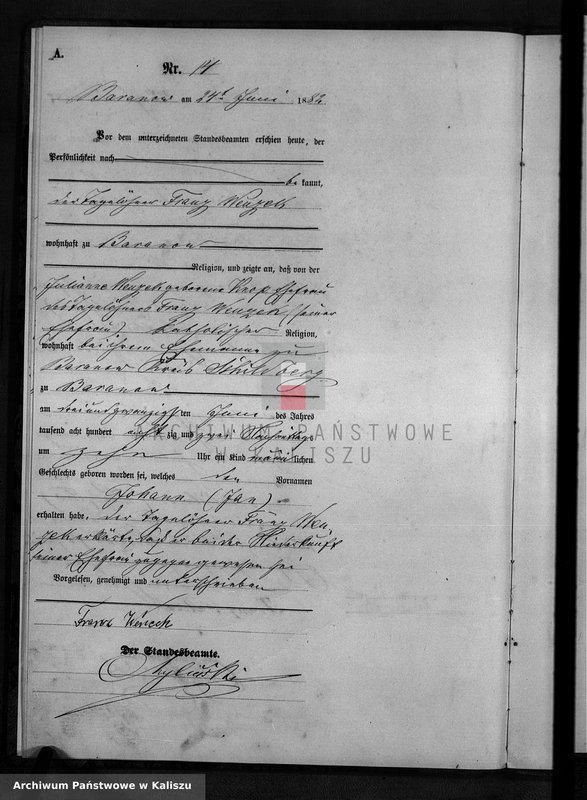 A.
Nr. 14
Baranow am 24t Juni 1882
Vor dem unterzeichneten Standesbeamten erschien heute, der
Persönlichkeit nach
be kannt,
der Tagelöhner Franz Wenzek
wohnhaft zu Baranow
Religion, und zeigte an, daß von der
Julianne Wenzek geborene Ehefrau
des Tagelöhners Franz Wenzek (seiner
Ehefrau), katholischer Religion,
wohnhaft bei ihrem Ehemanne zu
Baranow Kreis Schildberg
zu Baranow
am dreiundzwanzigsten Juni des Jahres
tausend acht hundert achtzig und zwei Nachmittags
um zehn Uhr ein Kind männlichen
Geschlechts geboren worden sei, welches den Vornamen
Johann (Jan)
erhalten habe. der Tagelöhner Franz Wen-
zek erklärte, daß er bei der Niederkunft
seiner Ehefrau zugegen gewesen sei
Vorgelesen, genehmigt und unterschrieben
Franz
Der Standesbeamte.
ARCHIWUM PAŃSTWOWE
W KALISZU
Archiwum Państwowe w Kaliszu